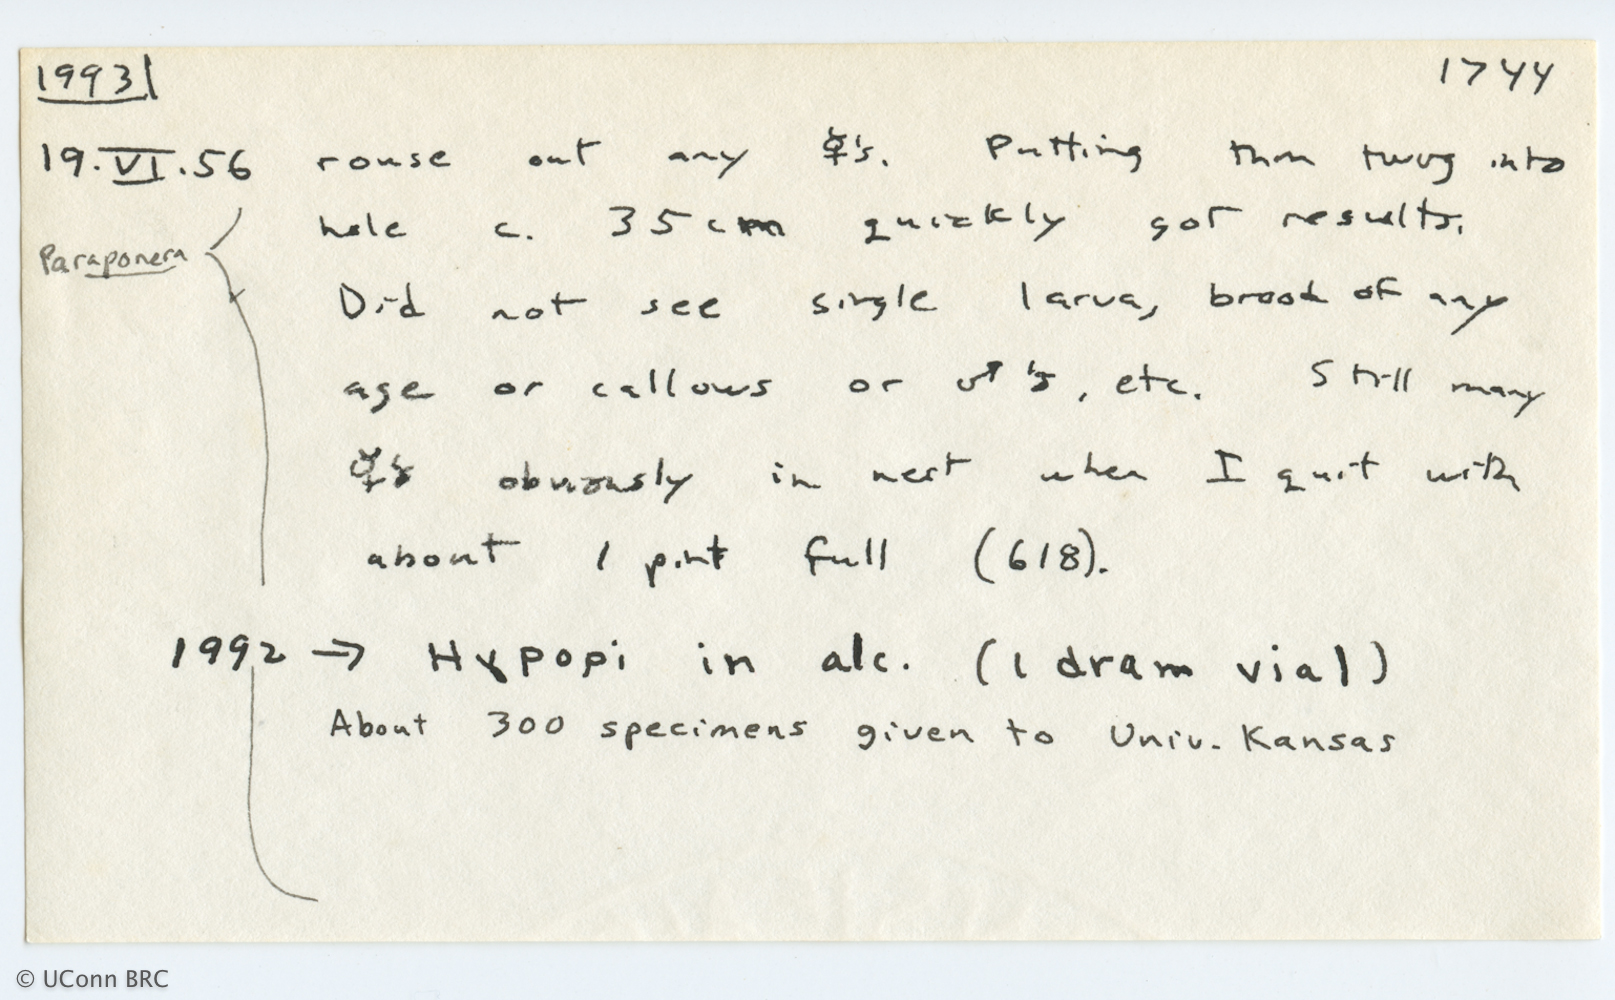 1993 1744
19.VI.56 rouse out any ☿'s. Putting thin twig into
hole c. 35cm quickly got results.
Paraponera
Did not see single larva, brood of any
age or callows or ♂'s, etc. Still many
☿s obviously in nest when I quit with
about 1 pint full (618).
1992 → Hypopi in alc. (1 dram vial)
About 300 specimens given to Univ. Kansas
© UConn BRC